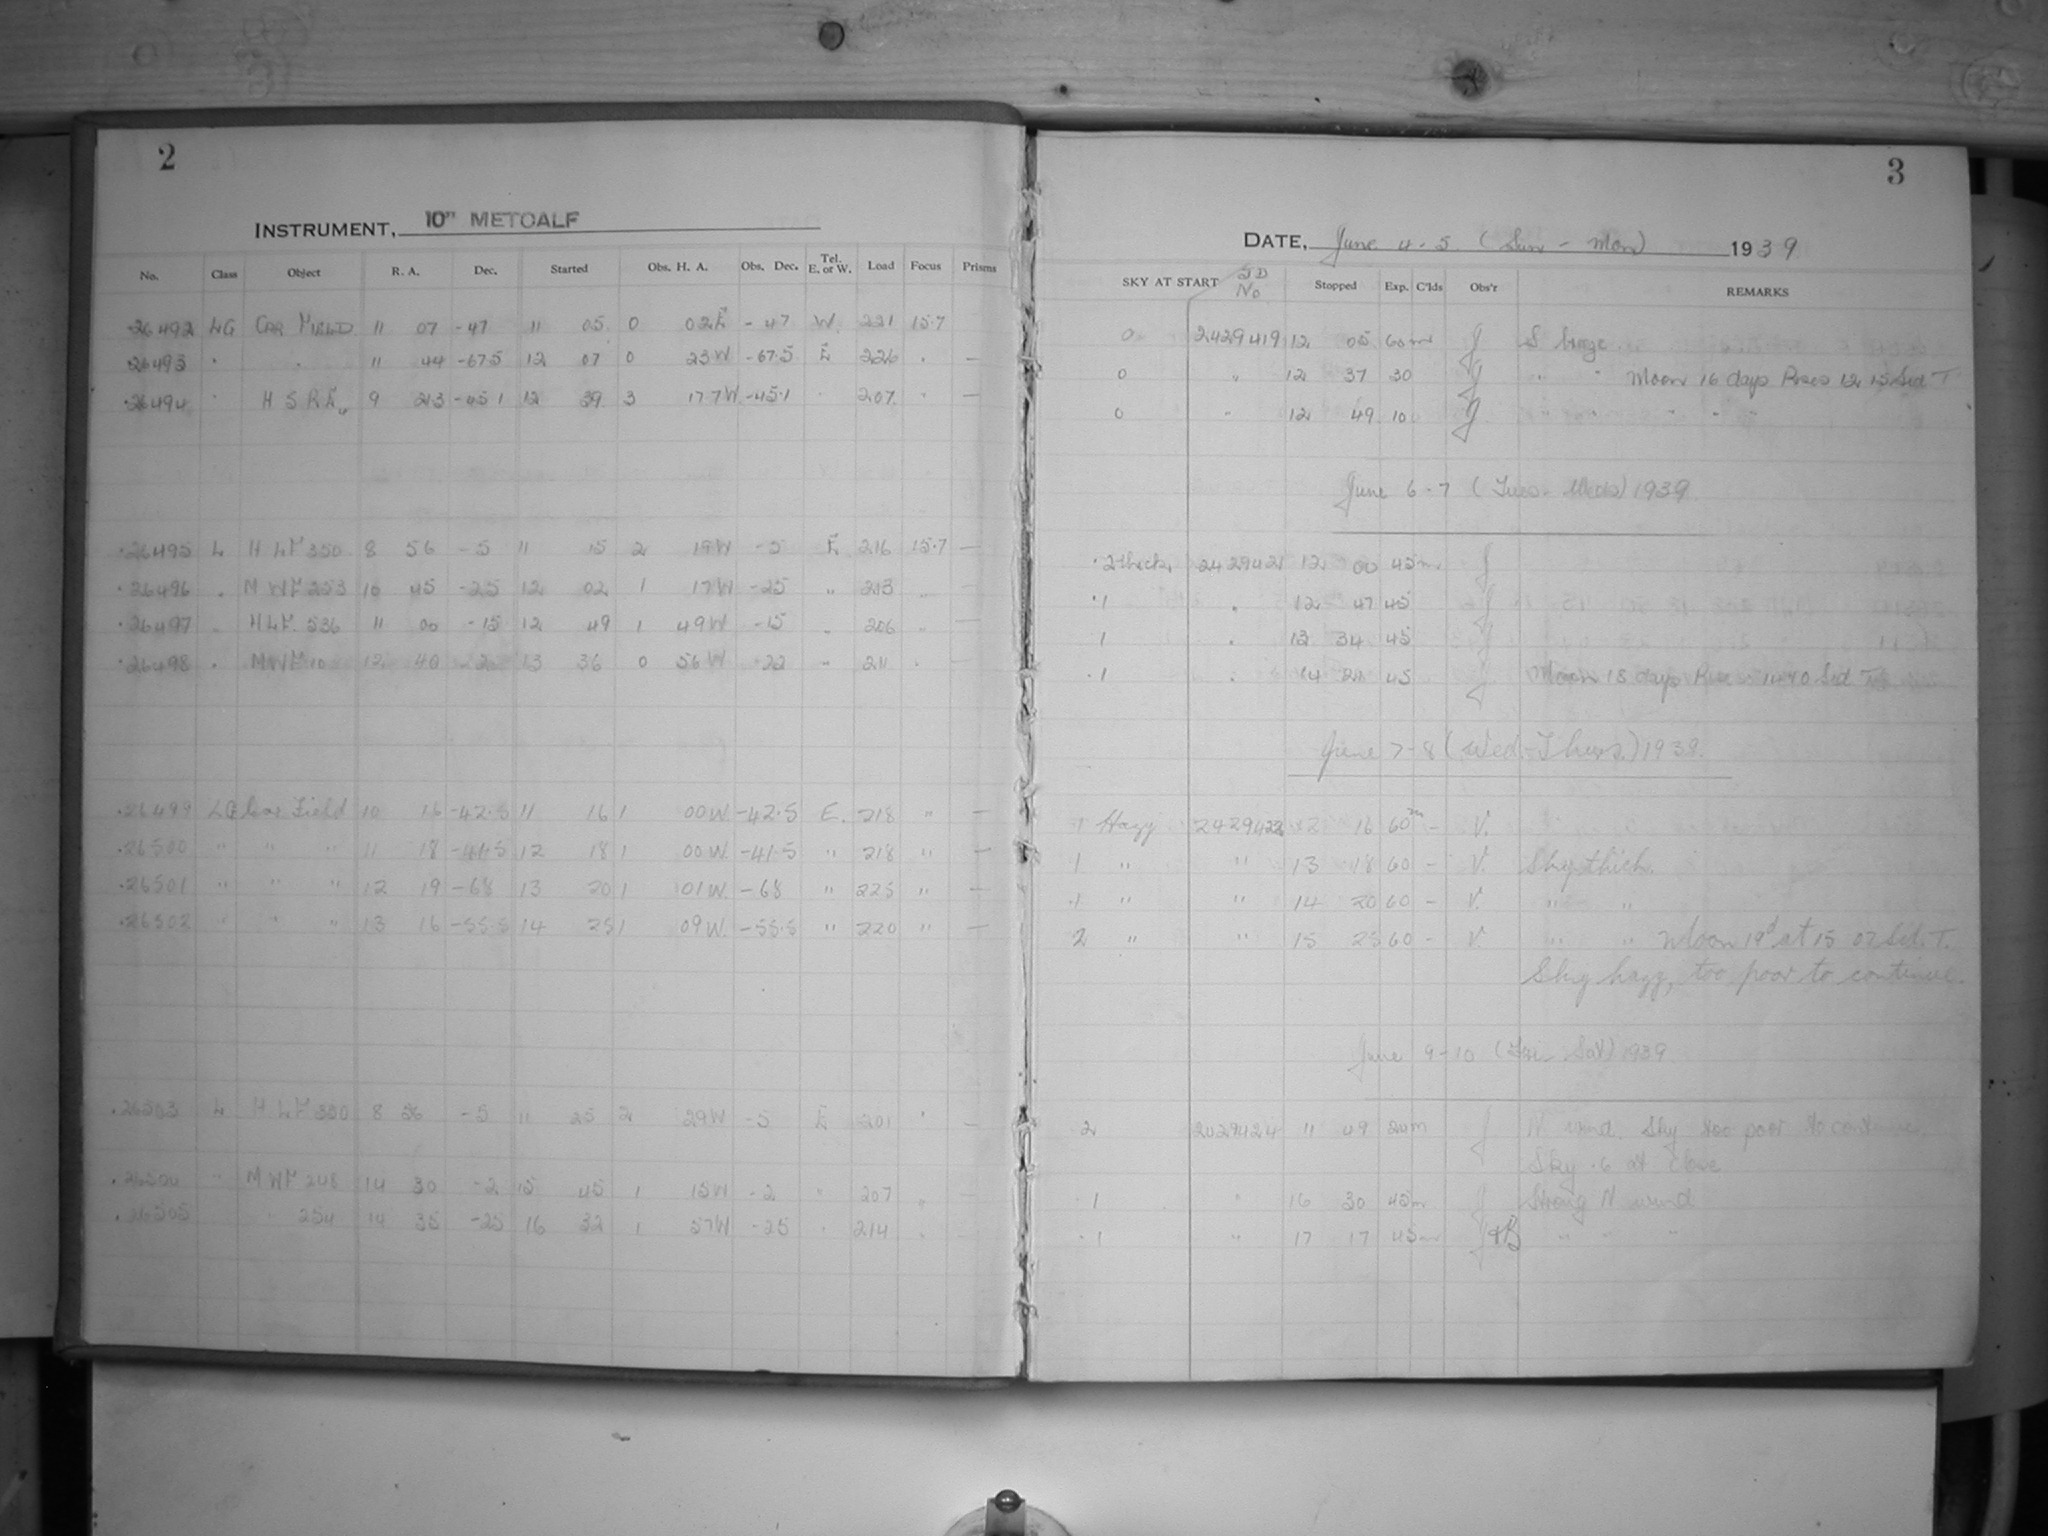 2
INSTRUMENT, 10" METCALF
No. Class Object R. A. Dec. Started Obs. H. A. Obs. Dec. Tel. E. or W. Load Focus Prisms
26492 LG CAR FIELD 11 07 -47 11 05 0 02 E -47 W. 221 15.7
26493 " " 11 44 -67.5 12 07 0 23 W -67.5 E 226 " —
26494 " 9 23 -45.1 12 39 3 17.7 W -45.1 " 207 " —
26495 L HLF 350 8 56 -5 11 15 2 19 W -5 E 216 15.7 —
26496 " MWF 253 10 45 -25 12 02 1 17 W -25 " 213 " —
26497 " HLF 536 11 00 -15 12 49 1 49 W -15 " 206 " —
26498 " MWF 12 40 13 36 0 56 W -22 " 211 " —
26499 LG Car Field 10 16 -42.5 11 16 1 00 W -42.5 E. 218 " —
26500 " " " 11 18 -41.5 12 18 1 00 W -41.5 " 218 " —
26501 " " " 12 19 -68 13 20 1 01 W. -68 " 225 " —
26502 " " " 13 16 -55.5 14 25 1 09 W. -55.5 " 220 " —
26503 L HLF 350 8 56 -5 11 25 2 29 W -5 E 201 "
26504 " MWF 248 14 30 -2 15 45 1 15 W -2 " 207 " —
26505 " 254 14 35 -25 16 32 1 57 W -25 " 214 " —
3
DATE, June 4-5 (Sun - Mon) 1939
SKY AT START JD No Stopped Exp. C'lds Obs'r REMARKS
0 2429419 12 05 60m J S
0 " 12 37 30 J " " Moon 16 days Rises 12 15 Sid T
0 " 12 49 10 J " " " " "
June 6-7 (Tues - Weds) 1939
.2 thick 2429421 12 00 45m J
.1 " 12 47 45 J
.1 " 13 34 45 J
.1 " 14 21 45 J Moon 18 days Rises Sid T
June 7-8 (Wed.-Thurs.) 1939.
.1 Hazy 2429422 12 16 60m - V.
.1 " " 13 18 60 - V. Sky thick.
.1 " " 14 20 60 - V. " "
2 " " 15 25 60 - V. " " Moon 19d at 15 02 Sid. T.
Sky hazy, too poor to continue.
June 9-10 (Fri - Sat) 1939
2 2429424 11 49 24m J N wind. Sky too poor to continue.
Sky .6 at close
.1 " 16 30 45m J Strong N wind
.1 " 17 17 45m J+B " " "